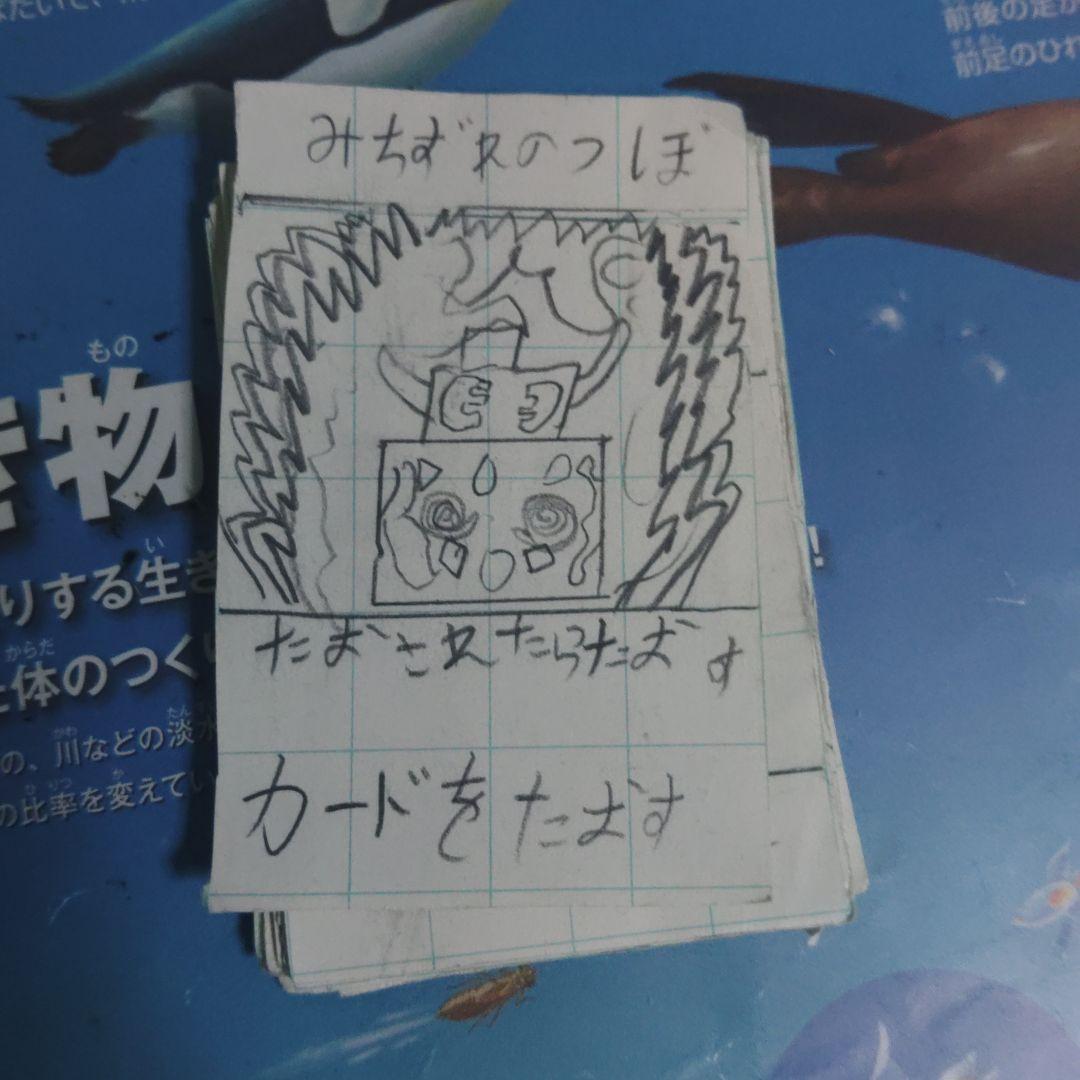 前後の足が
前足のひれ
みちずれのつぼ
もの
物
い
りする生き
からだ
体のつく
かわ
たん
の、川などの淡水
ひ りつ
か
の比率を変えてい
!
たおされたらたおす
カードをたおす